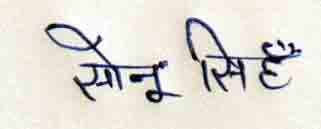 सोनू सिहँ